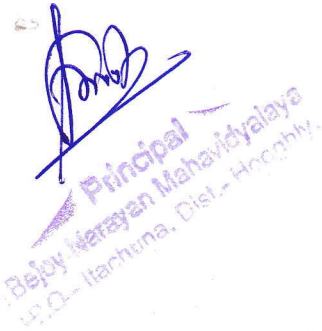 Principal
Bejoy Narayan Mahavidyalaya
P.O.- Itachuna, Dist.- Hooghly.